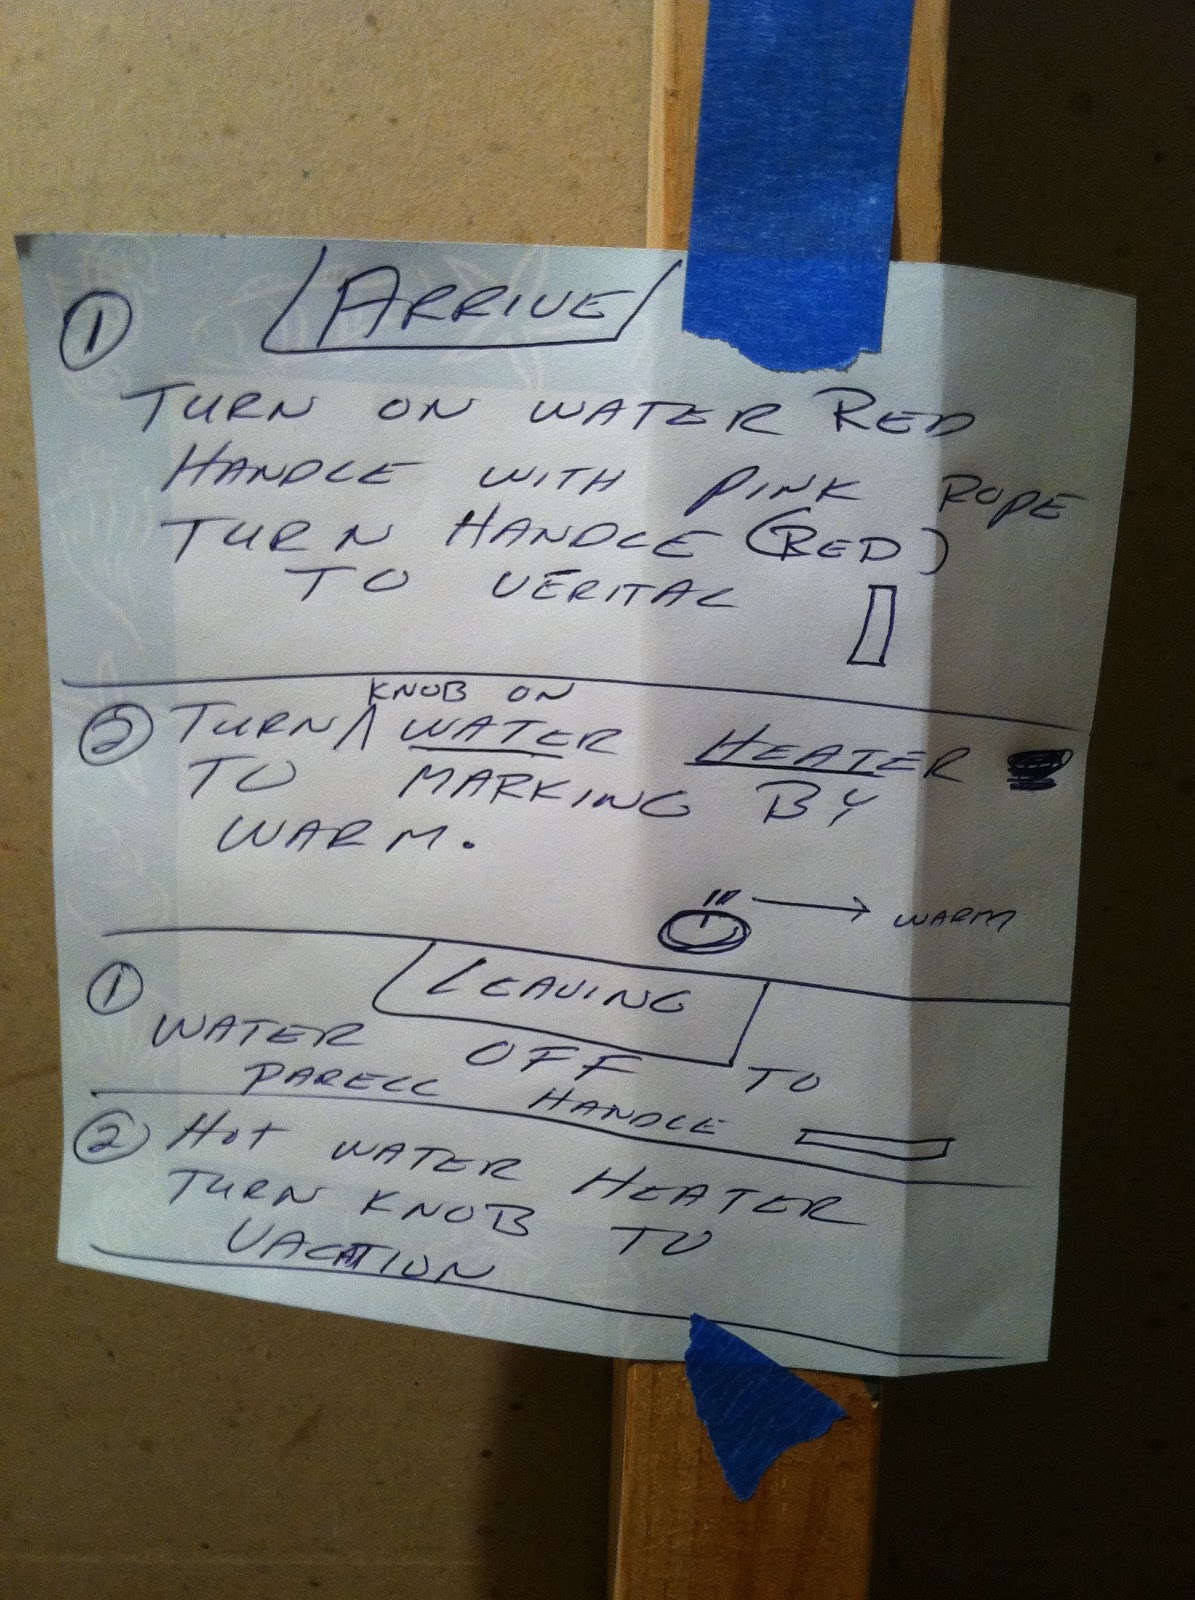 ① ARRIVE
TURN ON WATER RED
HANDLE WITH PINK ROPE
TURN HANDLE (RED)
TO VERITAL
KNOB ON
② TURN ∧ WATER HEATER
TO MARKING BY
WARM.
WARM
① LEAVING
WATER OFF TO
PARELL HANDLE
② HOT WATER HEATER
TURN KNOB TO
VACATION